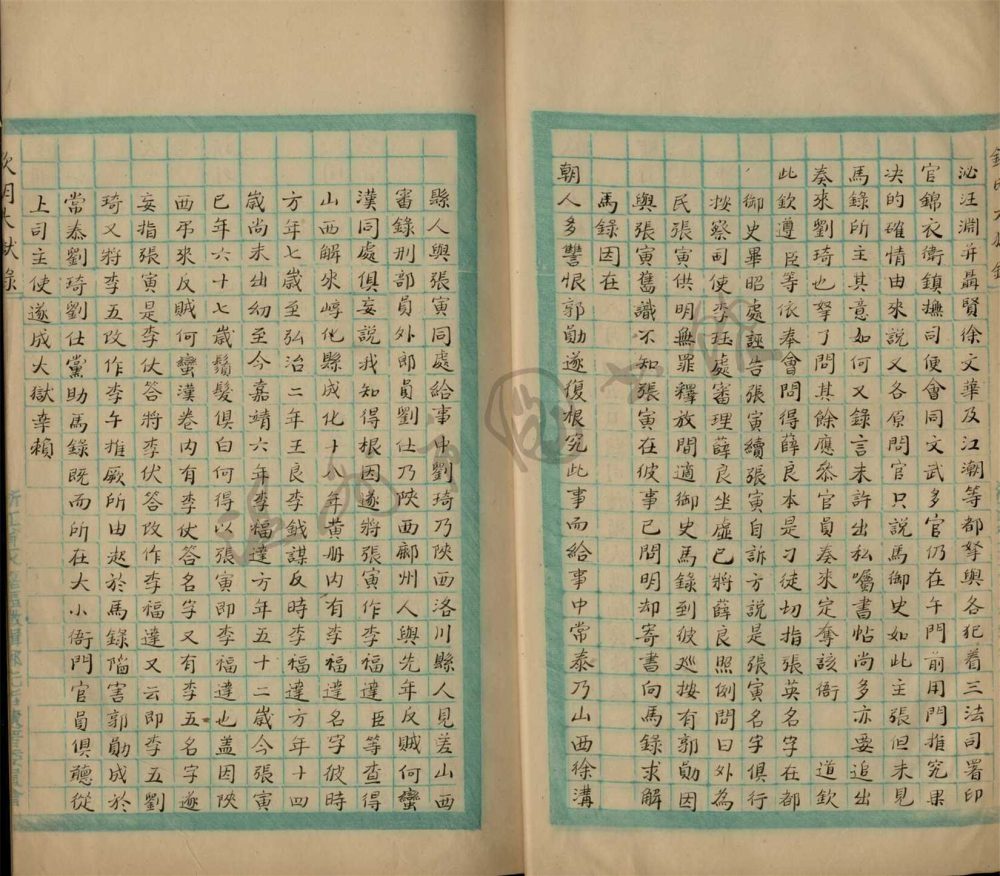 泌汪淵并聶賢徐文華及江潮等都拏與各犯着三法司署印
官錦衣衛鎮撫司便會同文武多官仍在午門前用門推究果
决的確情由來說又各原問官只說馬御史如此主張但未見
馬錄所主其意如何又錄言未許出私囑書帖尚多亦要追出
奏來劉琦也拏了問其餘應叅官員奏來定奪該衙道欽
此欽遵臣等依奉會問得薛良本是刁徒切指張英名字在都
御史畢昭處誣告張寅續張寅自訴方說是張寅名字俱行
按察司使李珏處審理薛良坐虛已將薛良照例問曰外為
民張寅供明無罪釋放間適御史馬錄到彼廵按有郭勛因
與張寅舊識不知張寅在彼事已問明却寄書向馬錄求解
馬錄因在
朝人多讐恨郭勛遂復根究此事而給事中常泰乃山西徐溝
縣人與張寅同處給事中劉琦乃陝西洛川縣人見差山西
審錄刑部員外郎員劉仕乃陝西鄜州人與先年反賊何蠻
漢同處俱妄說我知得根因遂將張寅作李福達臣等查得
山西解來崞化縣成化十八年黄册内有李福達名字彼時
方年七歲至弘治二年王良李鉞謀反時李福達方年十四
歲尚未出幼至今嘉靖六年李福達方年五十二歲今張寅
已年六十七歲鬚髮俱白何得以張寅即李福達也盖因陝
西弔來反賊何蠻漢卷内有李伏答名字又有李五名字遂
妄指張寅是李伏答將李伏答改作李福達又云即李五劉
琦又將李五改作李午推厥所由起於馬錄陷害郭勛成於
常泰劉琦劉仕黨助馬錄既而所在大小衙門官員俱聽從
上司主使遂成大獄幸賴
欽明大獄錄